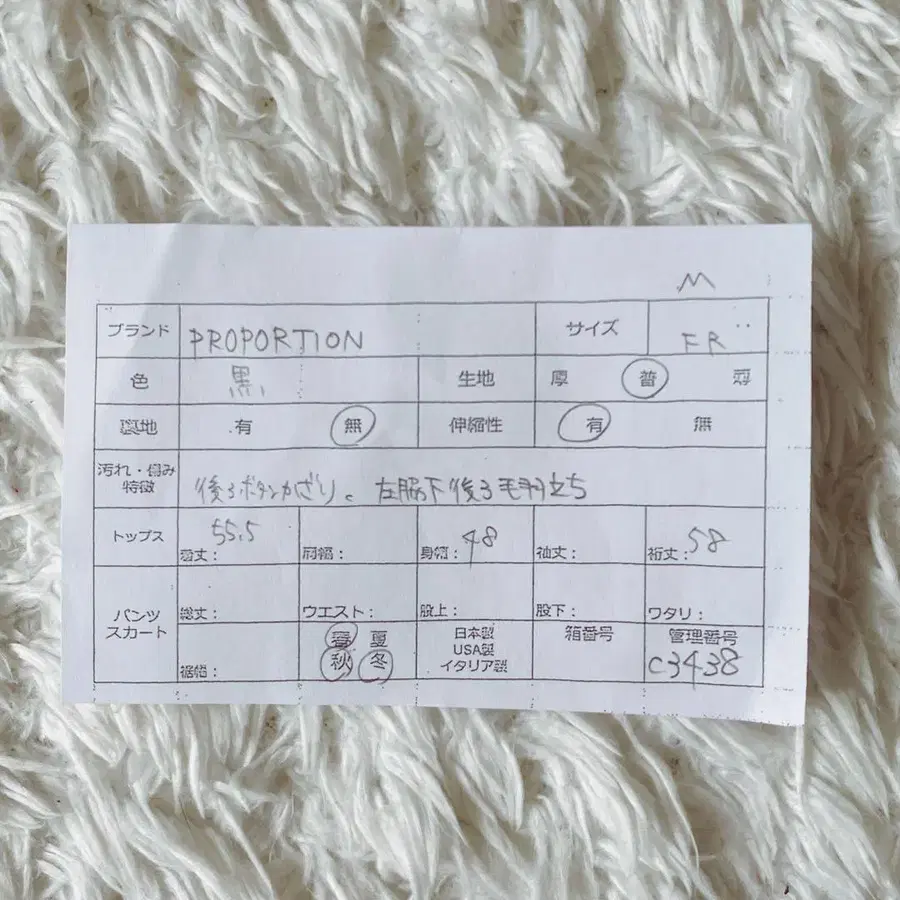 M
ブランド PROPORTION サイズ FR
色 黒 生地 厚 普 薄
裏地 有 無 伸縮性 有 無
汚れ・傷み
特徴
後ろボタンかざり。左脇下後ろ毛羽立ち
トップス 着丈: 55.5 肩幅: 身幅: 48 袖丈: 裄丈: 58
パンツ
スカート
総丈: ウエスト: 股上: 股下: ワタリ:
裾幅:
春 夏
秋 冬
日本製
USA製
イタリア製
箱番号
管理番号
C3438